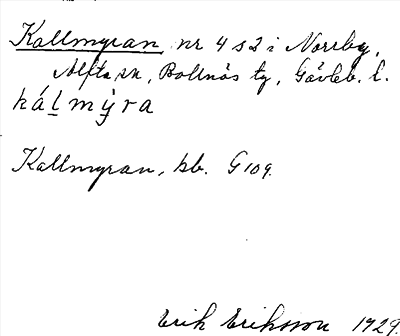 Kallmyran nr 4 s2 i Norrby,
Alfta sn, Bollnäs tg, Gävleb. l.
kálmýra
Kallmyran, kb. G 109.
Erik Eriksson 1929.